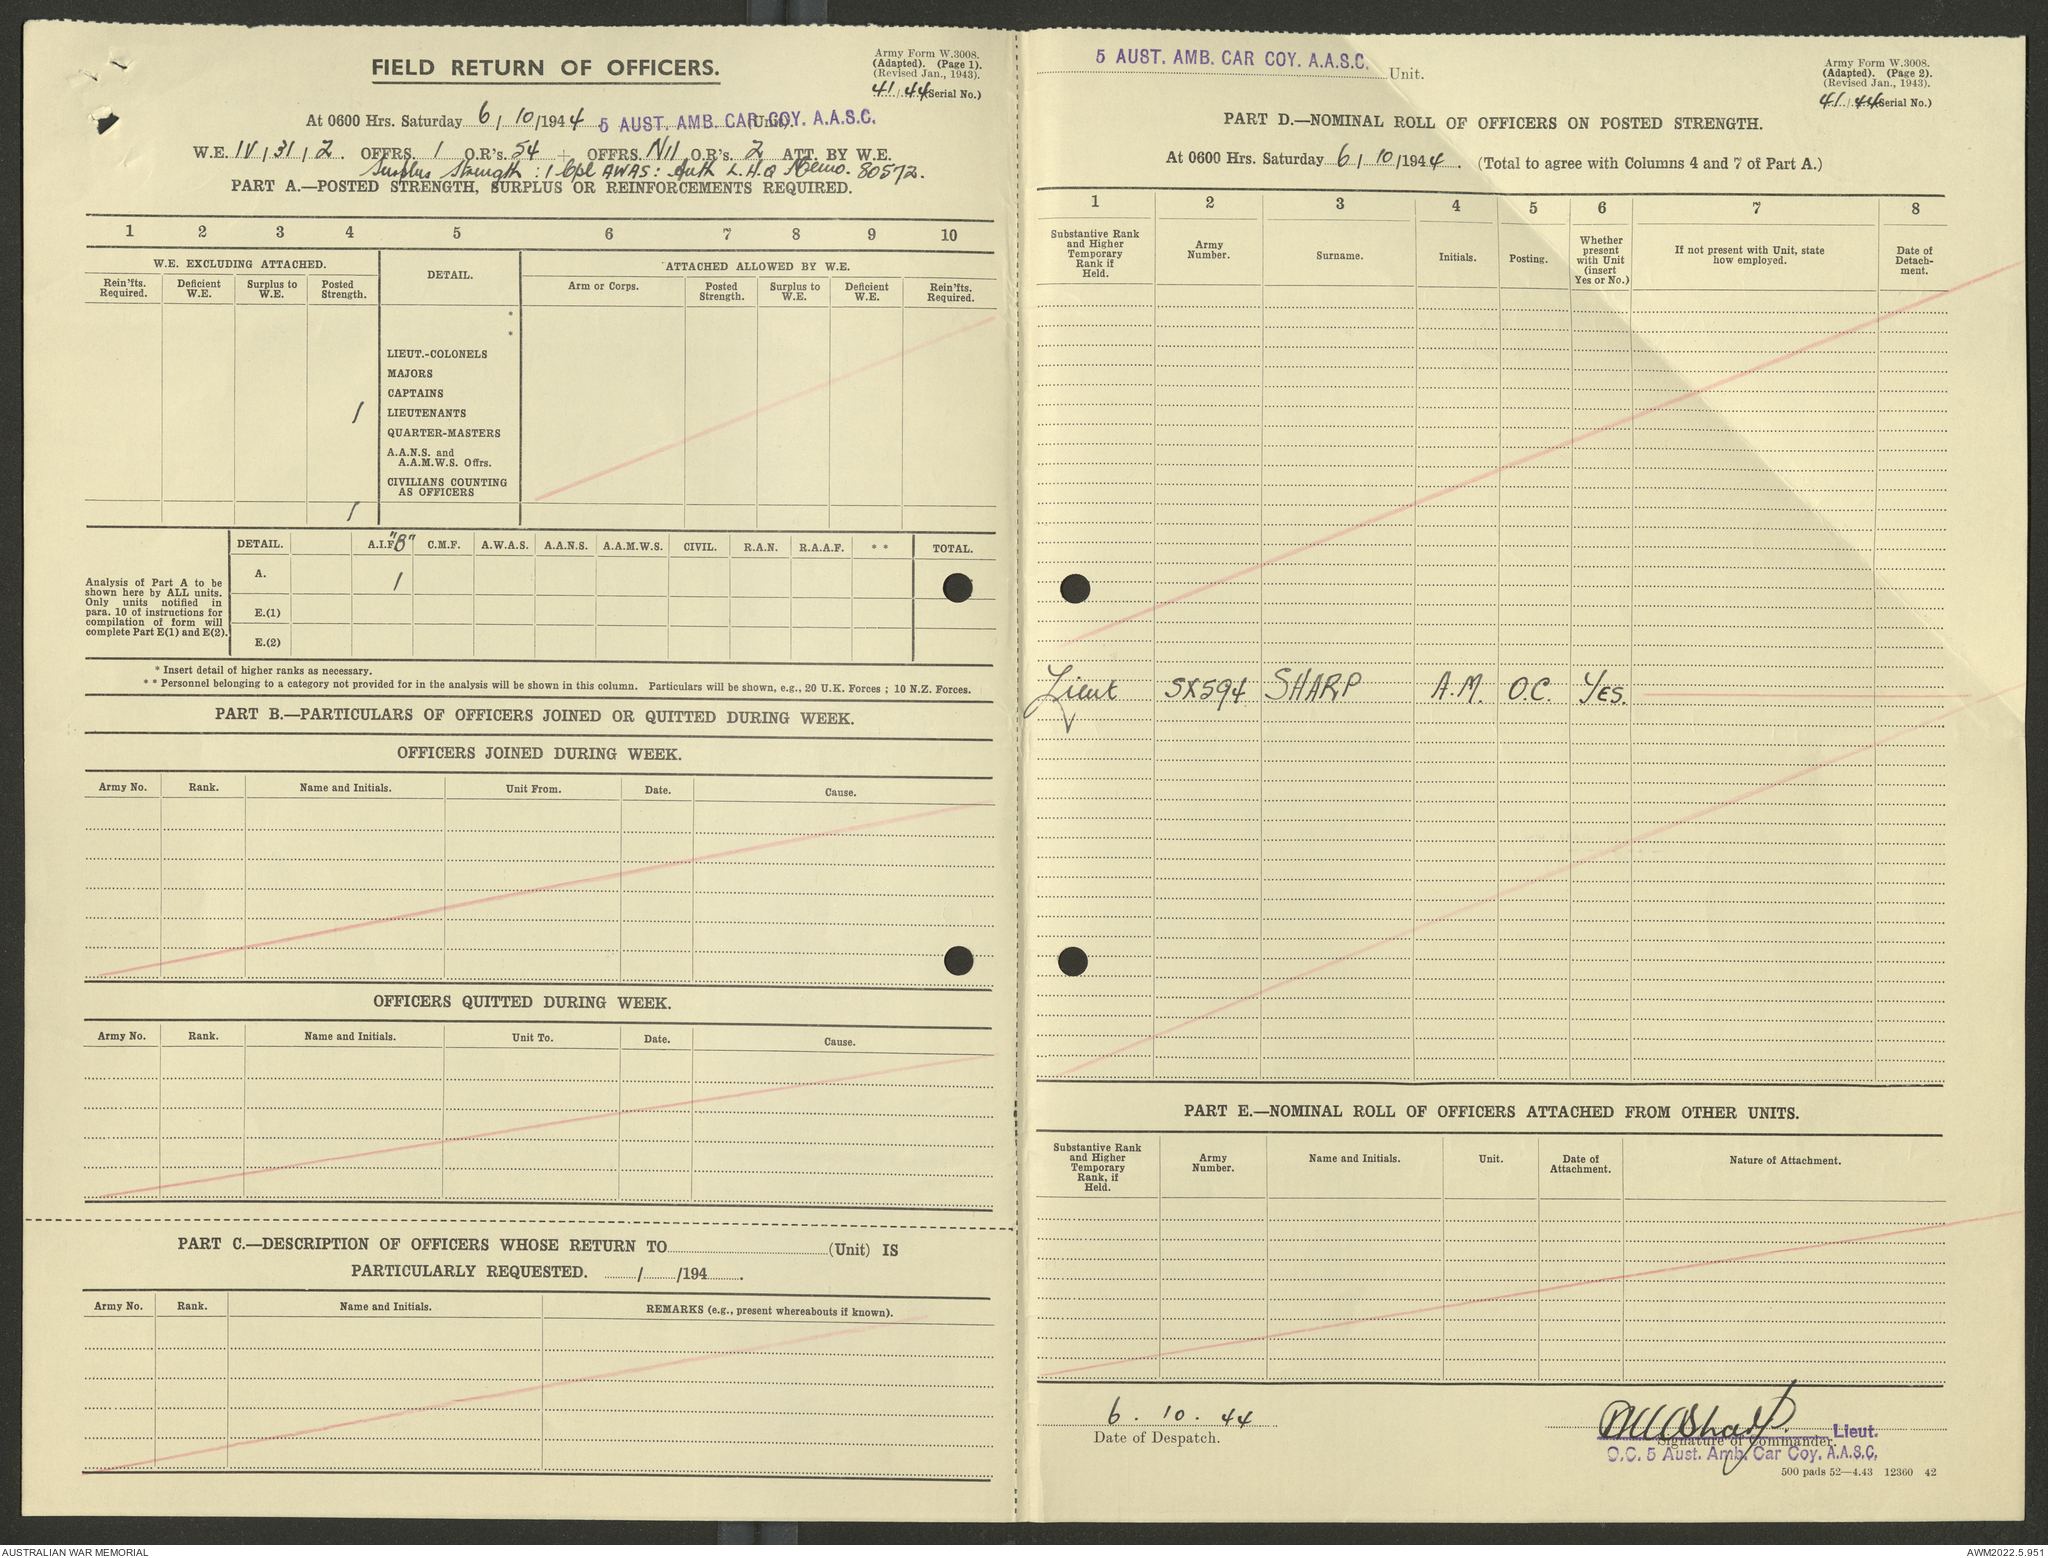 Army Form W.3008.
(Adapted). (Page 1).
(Revised Jan., 1943).
41/44 (Serial No.)
FIELD RETURN OF OFFICERS.
At 0600 Hrs. Saturday 6/10/1944 5 AUST. AMB. CAR COY. A.A.S.C. (Unit).
W.E. IV/31/2. OFFRS. 1 O.R's. 54 + OFFRS. Nil O.R's. 2 ATT. BY W.E.
Surplus Strength: 1 Cpl AWAS: Auth L.H.Q Memo. 80572.
PART A.—POSTED STRENGTH, SURPLUS OR REINFORCEMENTS REQUIRED.
1 2 3 4 5 6 7 8 9 10
W.E. EXCLUDING ATTACHED. DETAIL. ATTACHED ALLOWED BY W.E.
Rein'fts. Required. Deficient W.E. Surplus to W.E. Posted Strength. Arm or Corps. Posted Strength. Surplus to W.E. Deficient W.E. Rein'fts. Required.
*
*
LIEUT.-COLONELS
MAJORS
CAPTAINS
1 LIEUTENANTS
QUARTER-MASTERS
A.A.N.S. and
A.A.M.W.S. Offrs.
CIVILIANS COUNTING
AS OFFICERS
1
DETAIL. A.I.F. "B" C.M.F. A.W.A.S. A.A.N.S. A.A.M.W.S. CIVIL. R.A.N. R.A.A.F. * * TOTAL.
Analysis of Part A to be
shown here by ALL units.
Only units notified in
para. 10 of instructions for
compilation of form will
complete Part E(1) and E(2).
A. 1
E.(1)
E.(2)
* Insert detail of higher ranks as necessary.
* * Personnel belonging to a category not provided for in the analysis will be shown in this column. Particulars will be shown, e.g., 20 U.K. Forces ; 10 N.Z. Forces.
PART B.—PARTICULARS OF OFFICERS JOINED OR QUITTED DURING WEEK.
OFFICERS JOINED DURING WEEK.
Army No. Rank. Name and Initials. Unit From. Date. Cause.
OFFICERS QUITTED DURING WEEK.
Army No. Rank. Name and Initials. Unit To. Date. Cause.
PART C.—DESCRIPTION OF OFFICERS WHOSE RETURN TO (Unit) IS
PARTICULARLY REQUESTED. / /194 .
Army No. Rank. Name and Initials. REMARKS (e.g., present whereabouts if known).
5 AUST. AMB. CAR COY. A.A.S.C. Unit.
Army Form W.3008.
(Adapted). (Page 2).
(Revised Jan., 1943).
41/44 (Serial No.)
PART D.—NOMINAL ROLL OF OFFICERS ON POSTED STRENGTH.
At 0600 Hrs. Saturday 6/10/1944. (Total to agree with Columns 4 and 7 of Part A.)
1 2 3 4 5 6 7 8
Substantive Rank and Higher Temporary Rank if Held. Army Number. Surname. Initials. Posting. Whether present with Unit (insert Yes or No.) If not present with Unit, state how employed. Date of Detach- ment.
Lieut SX594 SHARP A.M. O.C. YES.
PART E.—NOMINAL ROLL OF OFFICERS ATTACHED FROM OTHER UNITS.
Substantive Rank and Higher Temporary Rank, if Held. Army Number. Name and Initials. Unit. Date of Attachment. Nature of Attachment.
6. 10. 44
Date of Despatch.
AM Sharp. Lieut.
Signature of Commander.
O.C. 5 Aust. Amb. Car Coy. A.A.S.C.
500 pads 52—4.43 12360 42
AUSTRALIAN WAR MEMORIAL
AWM2022.5.951